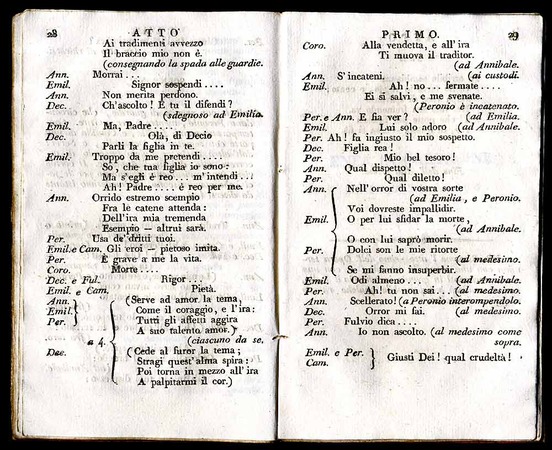 28 ATTO
Ai tradimenti avvezzo
Il braccio mio non è.
(consegnando la spada alle guardie.
Ann. Morrai . . .
Emil. Signor sospendi . . . .
Ann. Non merita perdono.
Dec. Ch'ascolto! E tu il difendi?
(sdegnoso ad Emilia.
Emil. Ma, Padre . . . .
Dec. Olà, di Decio
Parli la figlia in te.
Emil. Troppo da me pretendi . . . .
So, che tua figlia io sono:
Ma s'egli è reo . . . m'intendi . . .
Ah! Padre . . . . è reo per me.
Ann. Orrido estremo scempio
Fra le catene attenda:
Dell'ira mia tremenda
Esempio — altrui sarà.
Per. Usa de' dritti tuoi.
Emil. e Cam. Gli eroi — pietoso imita.
Per. È grave a me la vita.
Coro. Morte . . . .
Dec. e Ful. Rigor . . .
Emil. e Cam. Pietà.
Ann. (Serve ad amor la tema,
Emil. Come il coraggio, e l'ira:
Per. Tutti gli affetti aggira
a 4. A suo talento amor.)
(ciascuno da se.
Dec. (Cede al furor la tema;
Stragi quest'alma spira:
Poi torna in mezzo all'ira
A palpitarmi il cor.)
PRIMO. 29
Coro. Alla vendetta, e all'ira
Ti muova il traditor.
(ad Annibale.
Ann. S'incateni. (ai custodi.
Emil. Ah! no . . . fermate . . . .
Ei si salvi, e me svenate.
(Peronio è incatenato.
Per. e Ann. E fia ver? (ad Emilia.
Emil. Lui solo adoro (ad Annibale.
Per. Ah! fa ingiusto il mio sospetto.
Dec. Figlia rea!
Per. Mio bel tesoro!
Ann. Qual dispetto!
Per. Qual diletto!
Ann. Nell'orror di vostra sorte
(ad Emilia, e Peronio.
Voi dovreste impallidir.
Emil. O per lui sfidar la morte,
(ad Annibale.
O con lui saprò morir.
Per. Dolci son le mie ritorte
(al medesimo.
Se mi fanno insuperbir.
Emil. Odi almeno . . . (ad Annibale.
Per. Ah! tu non sai . . . (al medesimo.
Ann. Scellerato! (a Peronio interompendolo.
Dec. Error mi fai. (al medesimo.
Per. Fulvio dica . . . .
Ann. Io non ascolto. (al medesimo come
sopra.
Emil. e Per. Giusti Dei! qual crudeltà!
Cam.